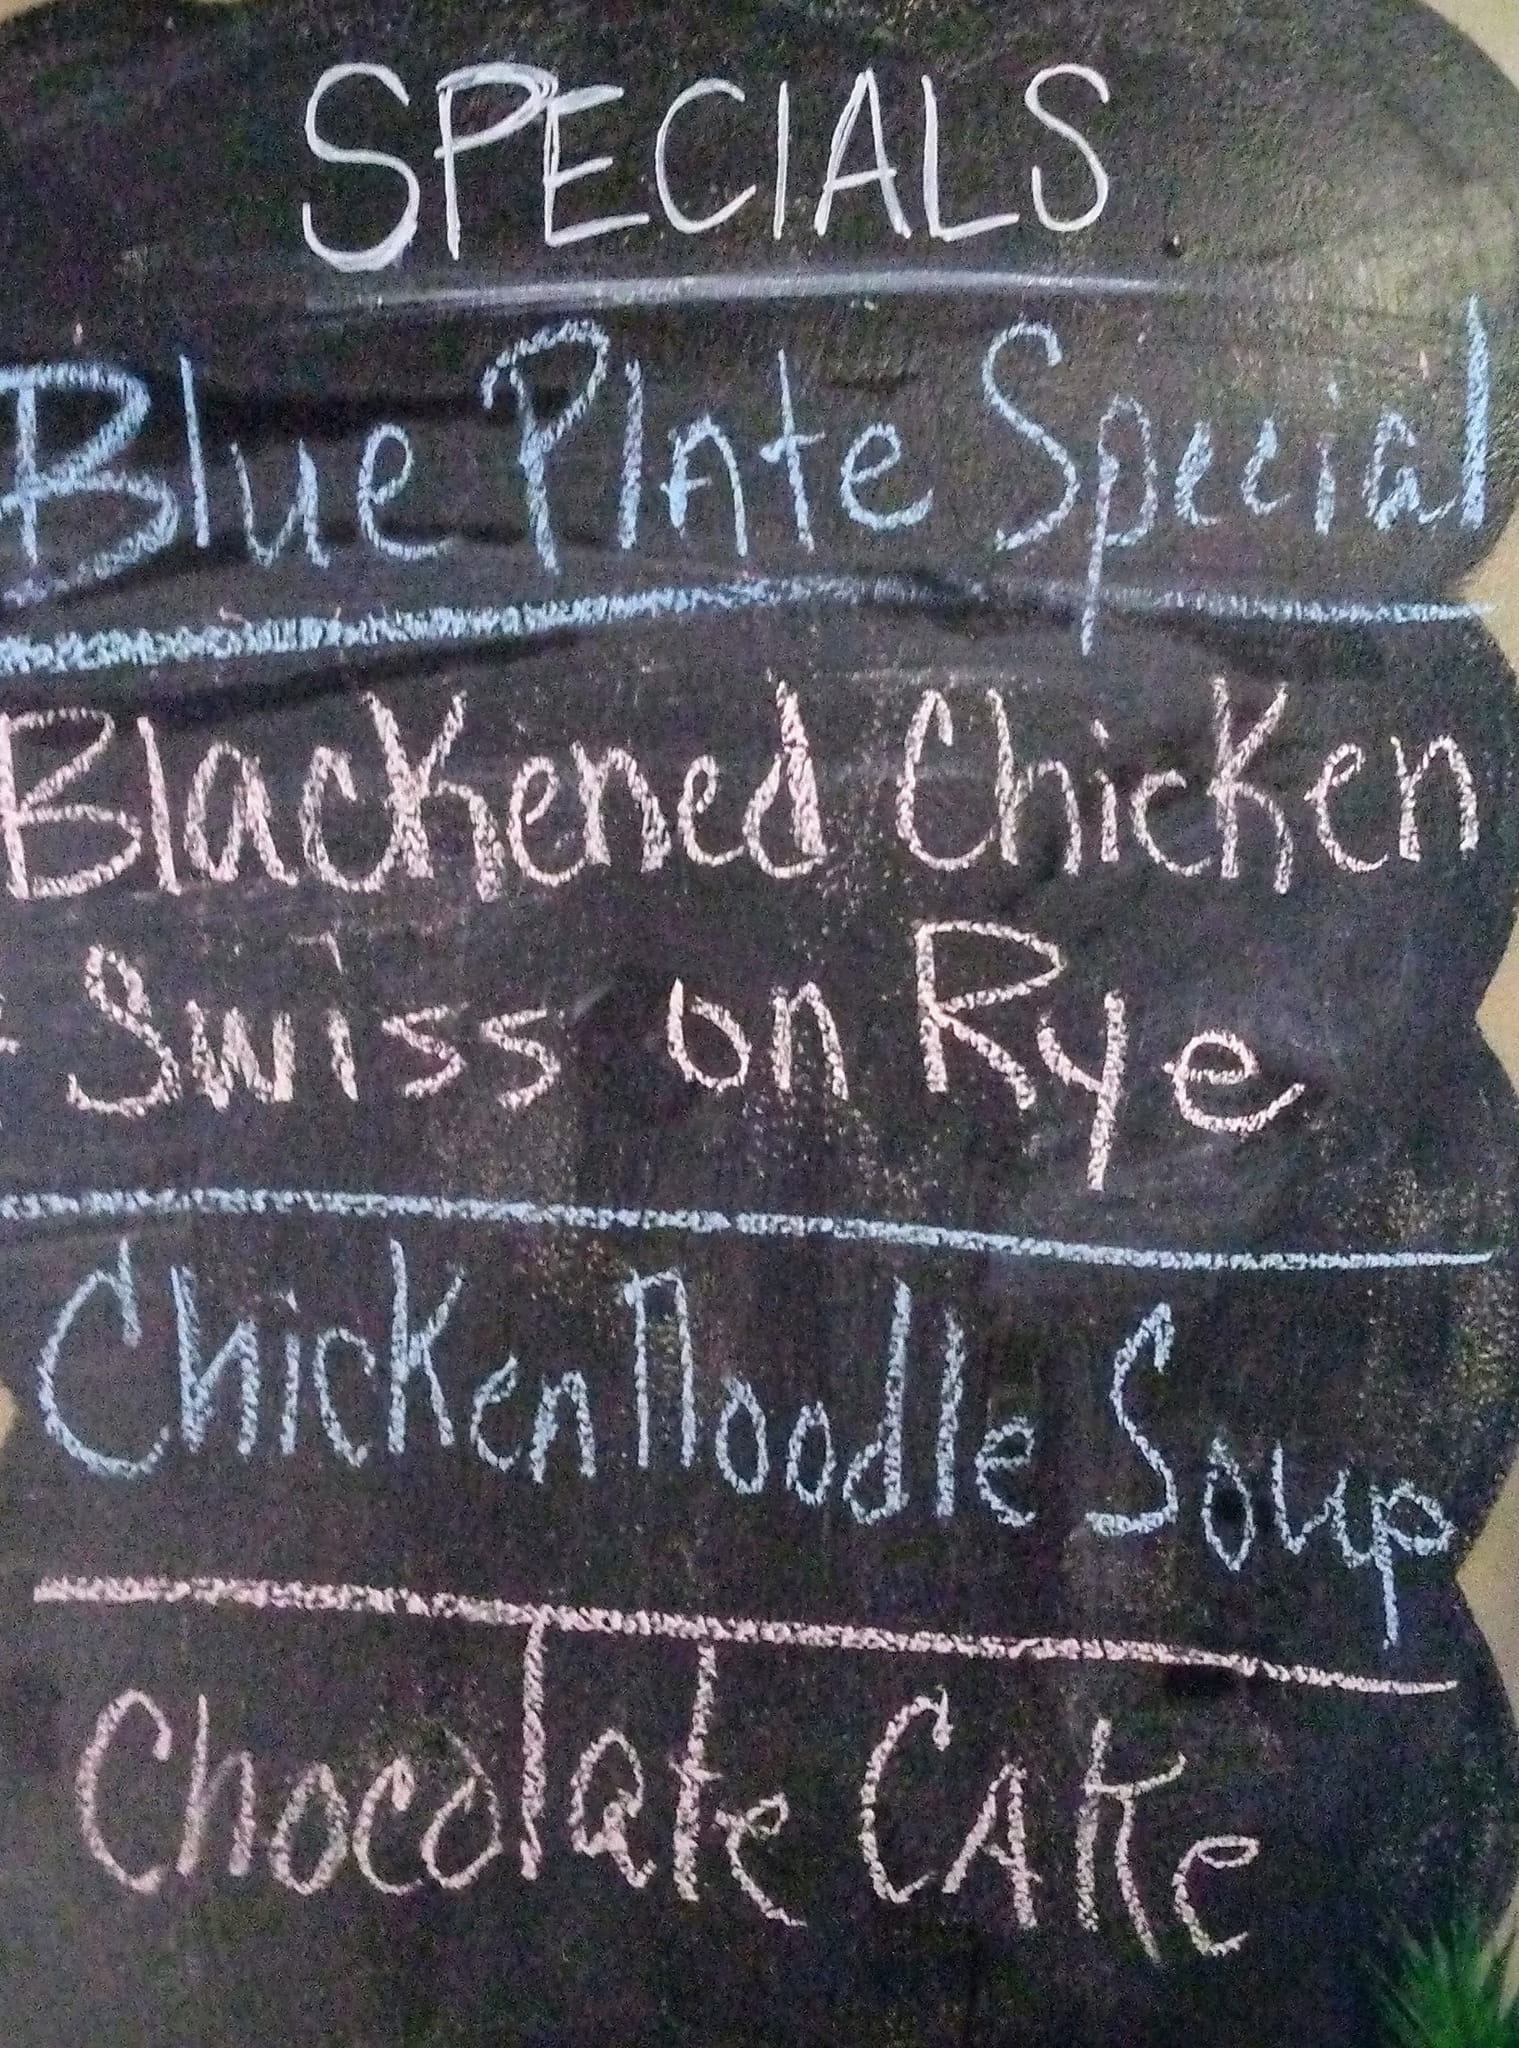 SPECIALS
Blue Plate Special
Blackened Chicken
+ Swiss on Rye
Chicken Noodle Soup
Chocolate Cake